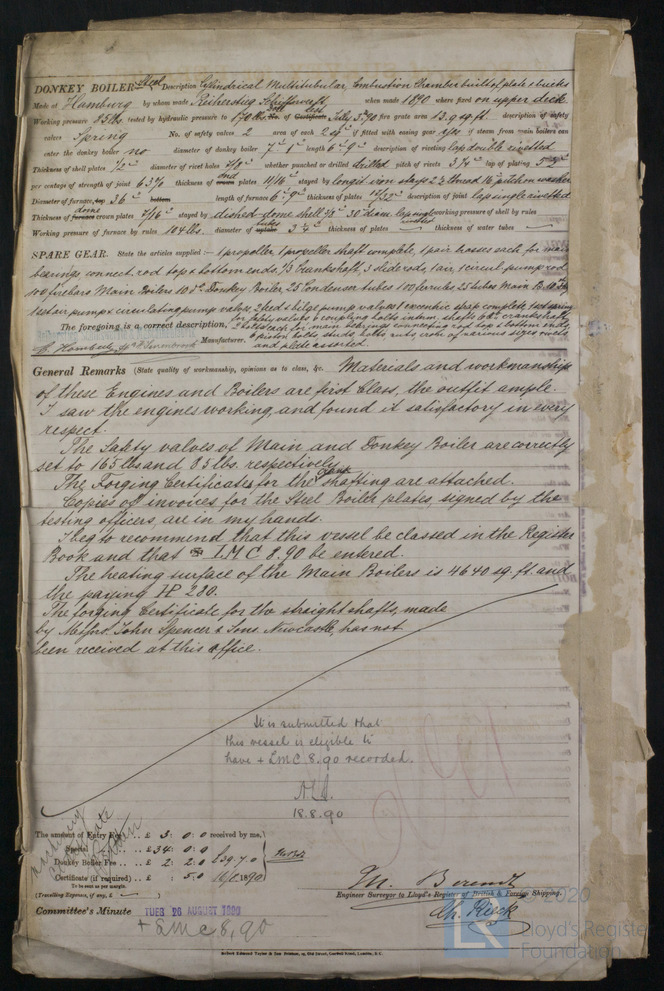 DONKEY BOILER Steel Description Cylindrical Multitubular, Combustion Chamber built of plate & backs
Made at Hamburg by whom made Reiherstieg Schiffswerft when made 1890 where fixed on upper deck
Working pressure 85 lbs tested by hydraulic pressure to 170 lbs No. of Certificate fire grate area 13.9 sq. ft. description of safety
valves Spring No. of safety valves 2 area of each if fitted with easing gear yes if steam from main boilers can
enter the donkey boiler no diameter of donkey boiler 7'-1" length 6'-9" description of riveting lap double rivetted
Thickness of shell plates 1/2" diameter of rivet holes whether punched or drilled drilled pitch of rivets lap of plating
per centage of strength of joint 63% thickness of end crown plates 11/16" stayed by longit iron stays
Diameter of furnace, top 36" bottom length of furnace 6'-9" thickness of plates description of joint lap single rivetted
Thickness of furnace dome crown plates 9/16" stayed by dished dome shell working pressure of shell by rules
Working pressure of furnace by rules 104 lbs. diameter of uptake tubes thickness of plates thickness of water tubes
SPARE GEAR. State the articles supplied:— 1 propeller 1 propeller shaft complete, 1 pair brasses each for main
bearings connect. rod top & bottom ends, 1/3 Crankshaft, 3 slide rods, 1 air, 1 circul. pump rod
100 firebars Main Boilers 10 Donkey Boiler 25 Condenser tubes 100 ferrules 25 tubes Main B.
1 set air pump & circulating pump valves, 2 feed & bilge pump valves 1 excentric strap complete, 1 set spring
for safety valves 6 coupling bolts interm. shafts 6 crankshafts
2 bolts each for main bearings connecting rod top & bottom ends
The foregoing is a correct description,
piston bolts, studs bolts, nuts, iron of various sizes
Manufacturer. and plate assorted.
General Remarks (State quality of workmanship, opinions as to class, &c. Materials and workmanship
of these Engines and Boilers are first Class, the outfit ample.
I saw the engines working, and found it satisfactory in every
respect.
The Safety valves of Main and Donkey Boiler are correctly
set to 165 lbs and 85 lbs. respectively
The Forging Certificates for the Crank shafting are attached.
Copies of invoices for the Steel Boiler plates, signed by the
testing officers, are in my hands.
I beg to recommend that this vessel be classed in the Register
Book and that LMC 8.90 be entered.
The heating surface of the Main Boilers is 4640 sq. ft. and
the paying HP 280.
The forging Certificate for the straight shafts, made
by Messrs. John Spencer & Sons Newcastle, has not
been received at this office.
It is submitted that
this vessel is eligible to
have + LMC 8.90 recorded.
18.8.90
Machinery
Certificate
The amount of Entry Fee .. £ 3: 0: 0 received by me,
Special .. £ 34: 0: 0
Donkey Boiler Fee .. £ 2: 2: 0 £39.7.0
Certificate (if required) .. £ : 5.0 1890
To be sent as per margin.
(Travelling Expenses, if any, £ )
Engineer Surveyor to Lloyd's Register of British & Foreign Shipping.
Committee's Minute TUES 26 AUGUST 1890
+ LMC 8,90
© 2020
LR Lloyd's Register
Foundation